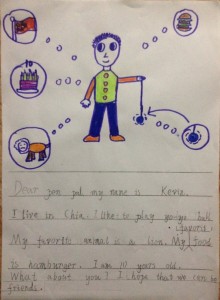 10
Dear pen pal my name is Kevin.
I live in China. I like to play yo-yo ball.
favorite
My favorite animal is a lion. My food
is hamburger. I am 10 years old.
What about you? I hope that we can be
friends.